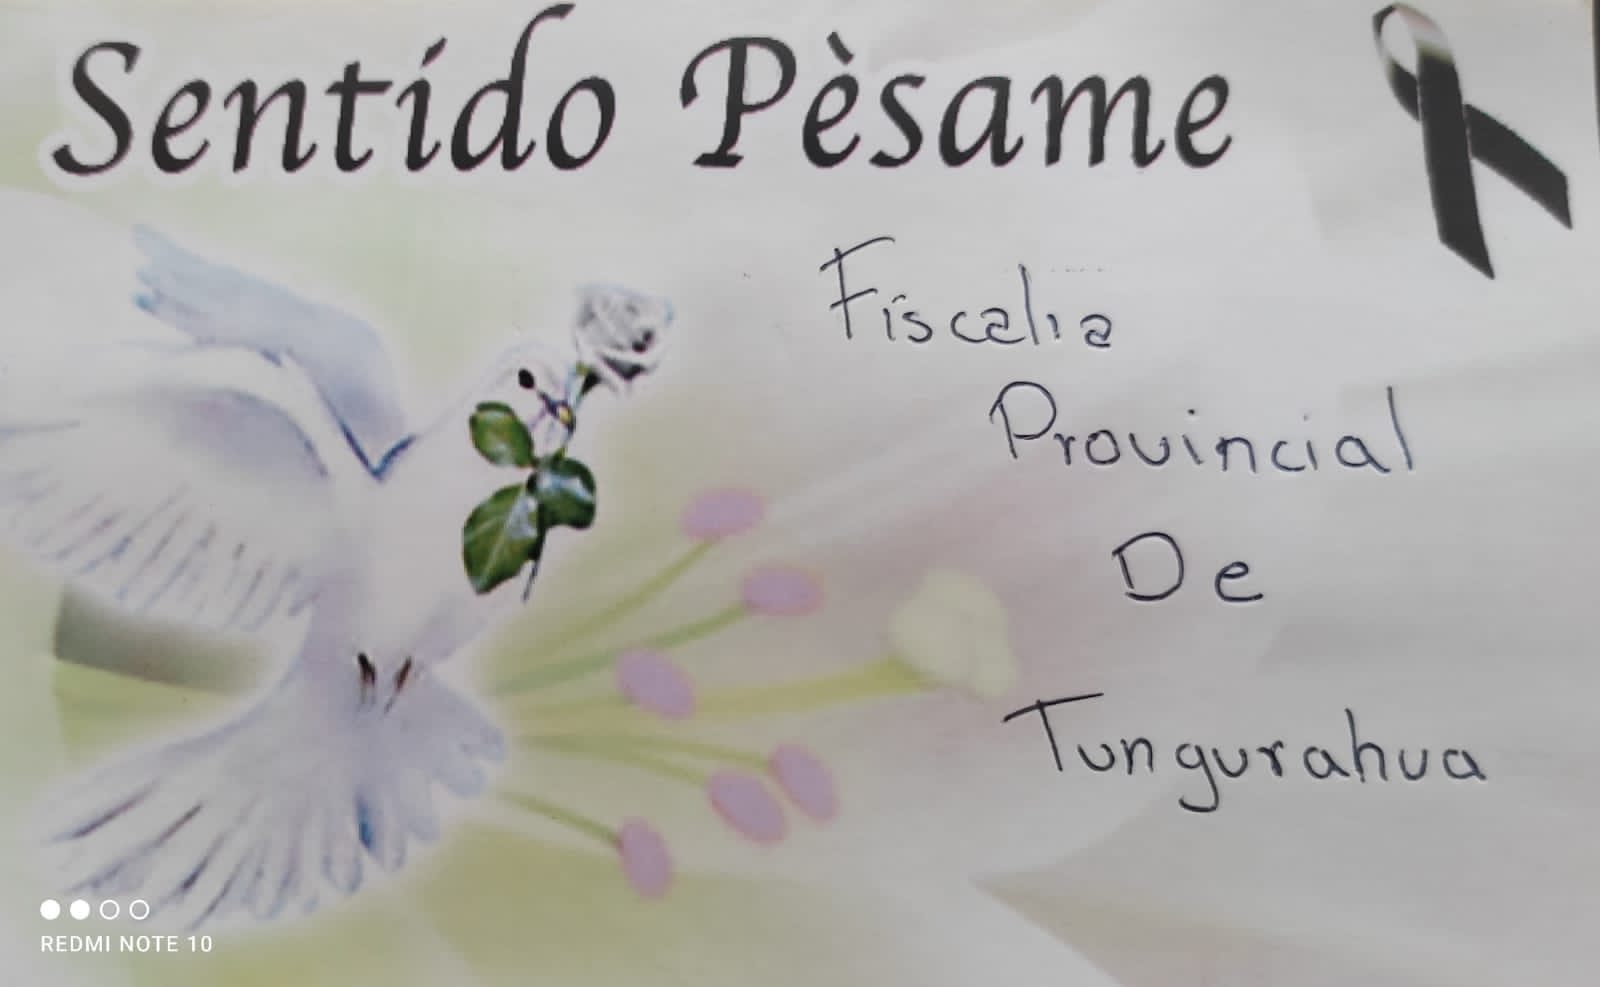 Sentido Pèsame
Fiscalia
Provincial
De
Tungurahua
REDMI NOTE 10